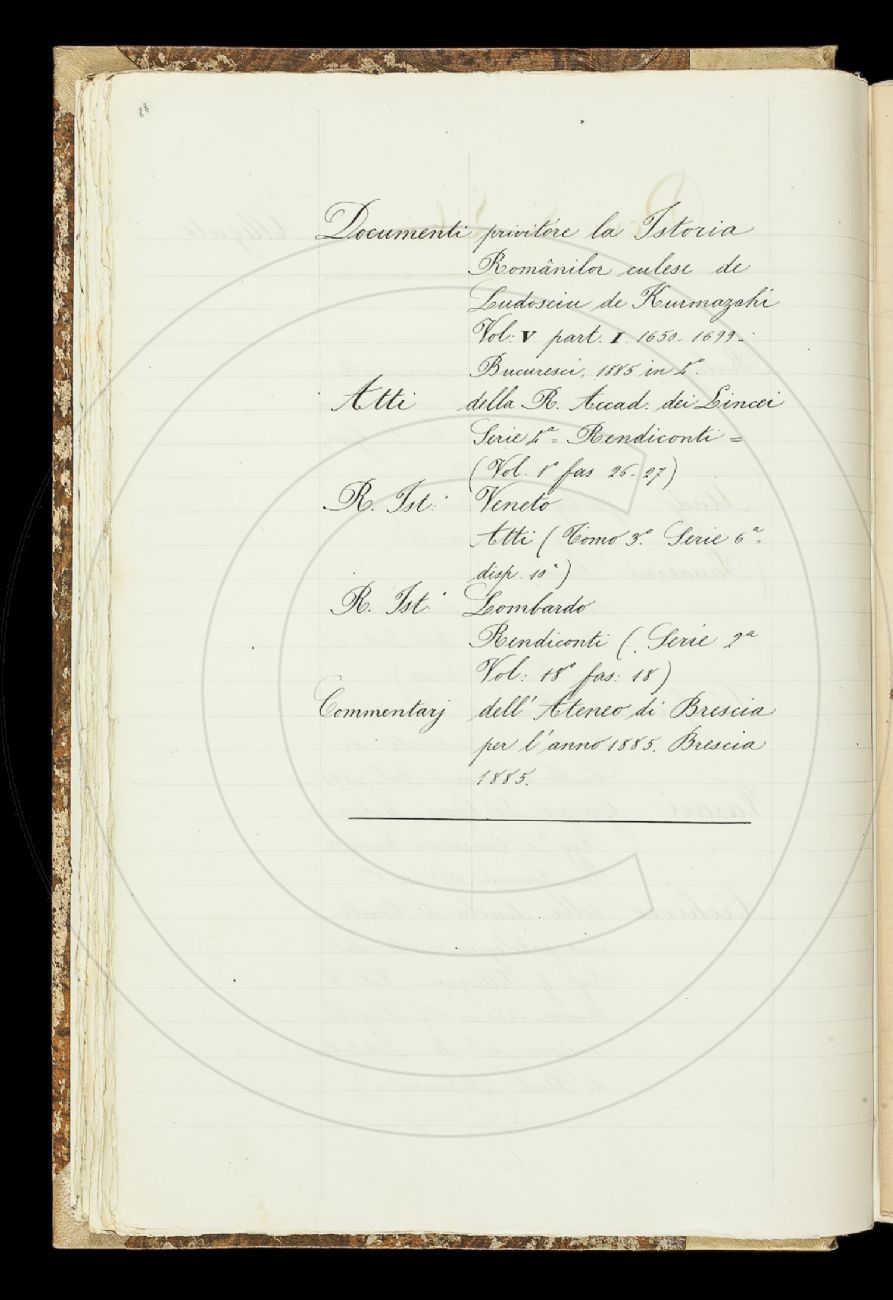 88
Documenti privitóre la Istoria
Românilor culese de
Ludosciu de Kurmazahi
Vol: V part. I. 1650-1699-
Bucuresci, 1885 in 4°.
Atti della R. Accad: dei Lincei
Serie 4ª = Rendiconti =
(Vol. 1° fas 26-27)
R. Ist: Veneto
Atti (Tomo 3° Serie 6ª-
disp. 10ª)
R. Ist: Lombardo
Rendiconti (Serie 2ª
Vol: 18° fas: 18)
Commentarj dell' Ateneo di Brescia
per l'anno 1885. Brescia
1885.